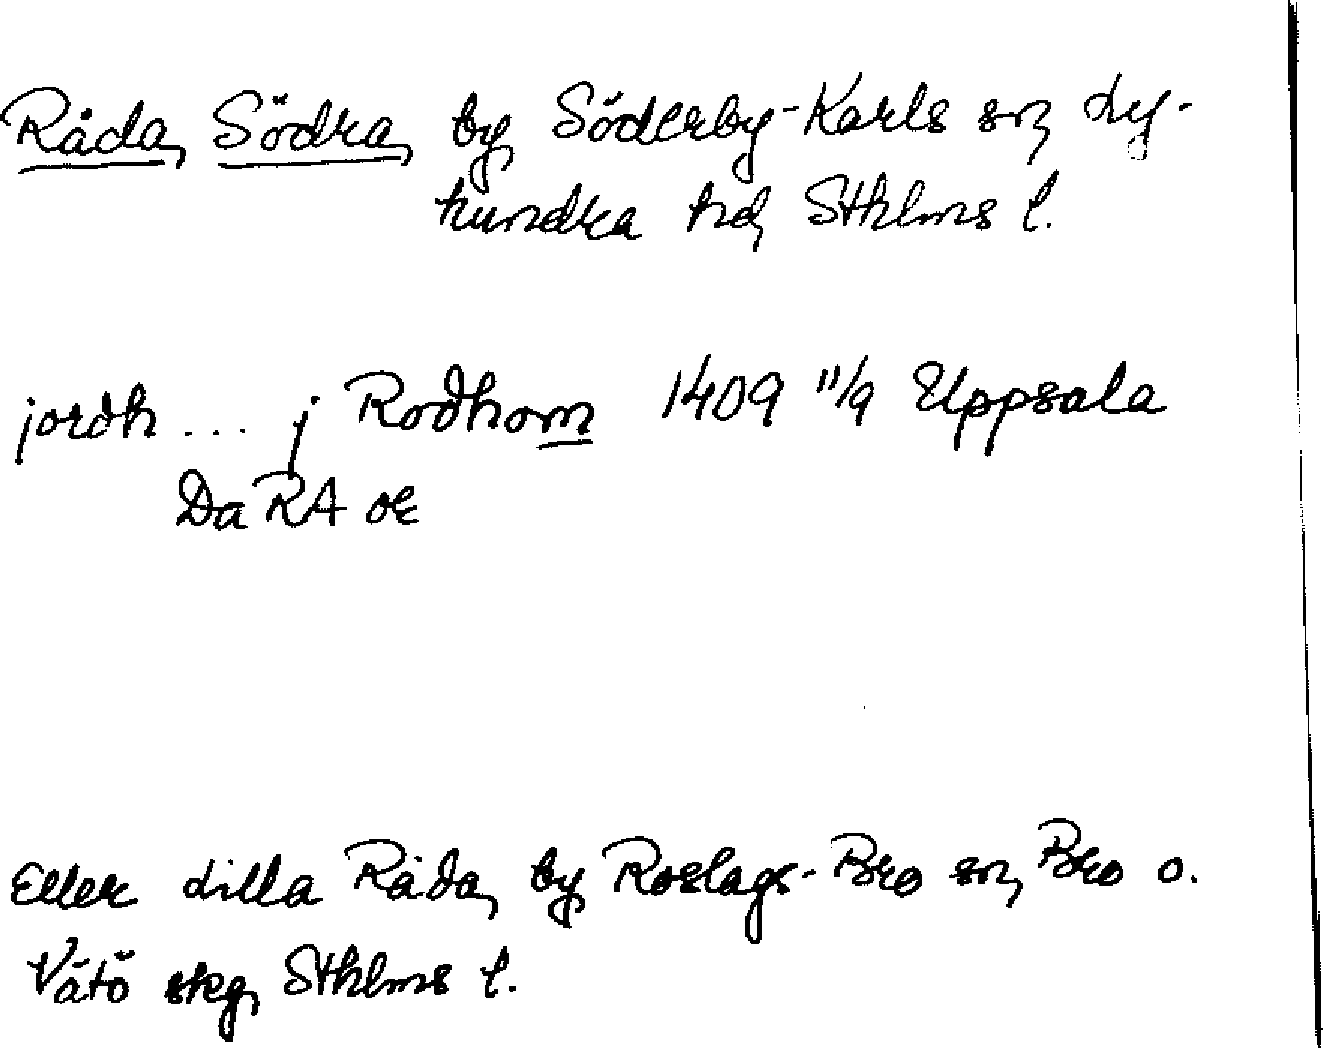 Råda, Södra, by Söderby-Karls sn, Ly-
hundra hd, Sthlms l.
jordh ... j Rodhom 1409 11/9 Uppsala
Da RA or
Eller Lilla Råda, by Roslags-Bro sn, Bro o.
Vätö skg, Sthlms l.